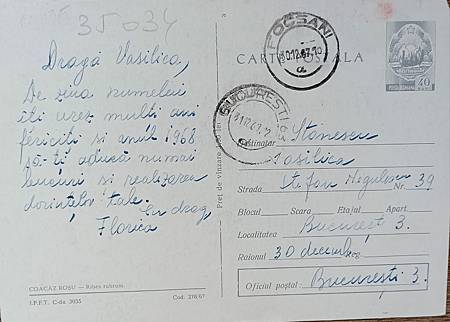 35034
Dragă Vasilica,
De ziua numelui
îți urez mulți ani
fericiți și anul 1968
să-ți aducă numai
bucurii și realizarea
dorințelor tale.
Cu drag
Florica
COACĂZ ROȘU — Ribes rubrum.
I.P.F.T. C-da 3035
Cod. 278/67
Preț de vînzare
FOCȘANI
30.12.67.10
CARTE POȘTALĂ
40
BUCUREȘTI
Destinatar Stănescu
Vasilica
Strada Ștefan Negulescu Nr. 39
Blocul Scara Etajul Apart.
Localitatea București 3.
Raionul 30 decembrie Reg.
Oficiul poștal: București 3.